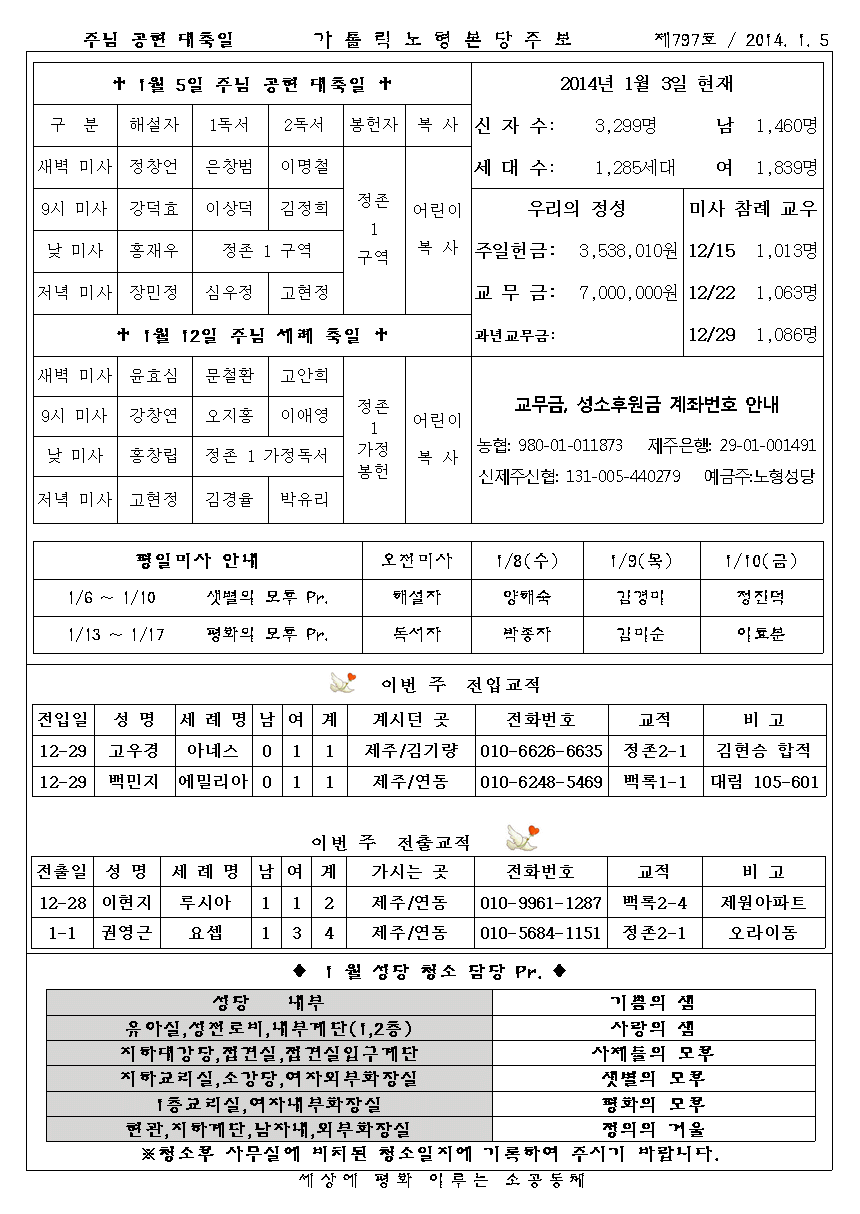 주님 공현 대축일 가톨릭노형본당주보 제797호 / 2014. 1. 5
✝ 1월 5일 주님 공현 대축일 ✝
구 분 해설자 1독서 2독서 봉헌자 복 사
새벽 미사 정창언 은창범 이명철
9시 미사 강덕효 이상덕 김정희
낮 미사 홍재우 정존 1 구역
저녁 미사 장민정 심우정 고현정
정존
1
구역
어린이
복 사
✝ 1월 12일 주님 세례 축일 ✝
새벽 미사 윤효심 문철환 고안희
9시 미사 강창연 오지홍 이애영
낮 미사 홍창립 정존 1 가정독서
저녁 미사 고현정 김경율 박유리
정존
1
가정
봉헌
어린이
복 사
2014년 1월 3일 현재
신 자 수: 3,299명 남 1,460명
세 대 수: 1,285세대 여 1,839명
우리의 정성 미사 참례 교우
주일헌금: 3,538,010원 12/15 1,013명
교 무 금: 7,000,000원 12/22 1,063명
과년교무금: 12/29 1,086명
교무금, 성소후원금 계좌번호 안내
농협: 980-01-011873 제주은행: 29-01-001491
신제주신협: 131-005-440279 예금주:노형성당
평일미사 안내 오전미사 1/8(수) 1/9(목) 1/10(금)
1/6 ~ 1/10 샛별의 모후 Pr. 해설자 양해숙 김경미 정진덕
1/13 ~ 1/17 평화의 모후 Pr. 독서자 박종자 김미순 이효분
이번 주 전입교적
전입일 성 명 세 례 명 남 여 계 계시던 곳 전화번호 교적 비 고
12-29 고우경 아네스 0 1 1 제주/김기량 010-6626-6635 정존2-1 김현승 합적
12-29 백민지 에밀리아 0 1 1 제주/연동 010-6248-5469 백록1-1 대림 105-601
이번 주 전출교적
전출일 성 명 세 례 명 남 여 계 가시는 곳 전화번호 교적 비 고
12-28 이현지 루시아 1 1 2 제주/연동 010-9961-1287 백록2-4 제원아파트
1-1 권영근 요셉 1 3 4 제주/연동 010-5684-1151 정존2-1 오라이동
◆ 1 월 성당 청소 담당 Pr. ◆
성당 내부 기쁨의 샘
유아실,성전로비,내부계단(1,2층) 사랑의 샘
지하대강당,접견실,접견실입구계단 사제들의 모후
지하교리실,소강당,여자외부화장실 샛별의 모후
1층교리실,여자내부화장실 평화의 모후
현관,지하계단,남자내,외부화장실 정의의 거울
※청소후 사무실에 비치된 청소일지에 기록하여 주시기 바랍니다.
세상에 평화 이루는 소공동체